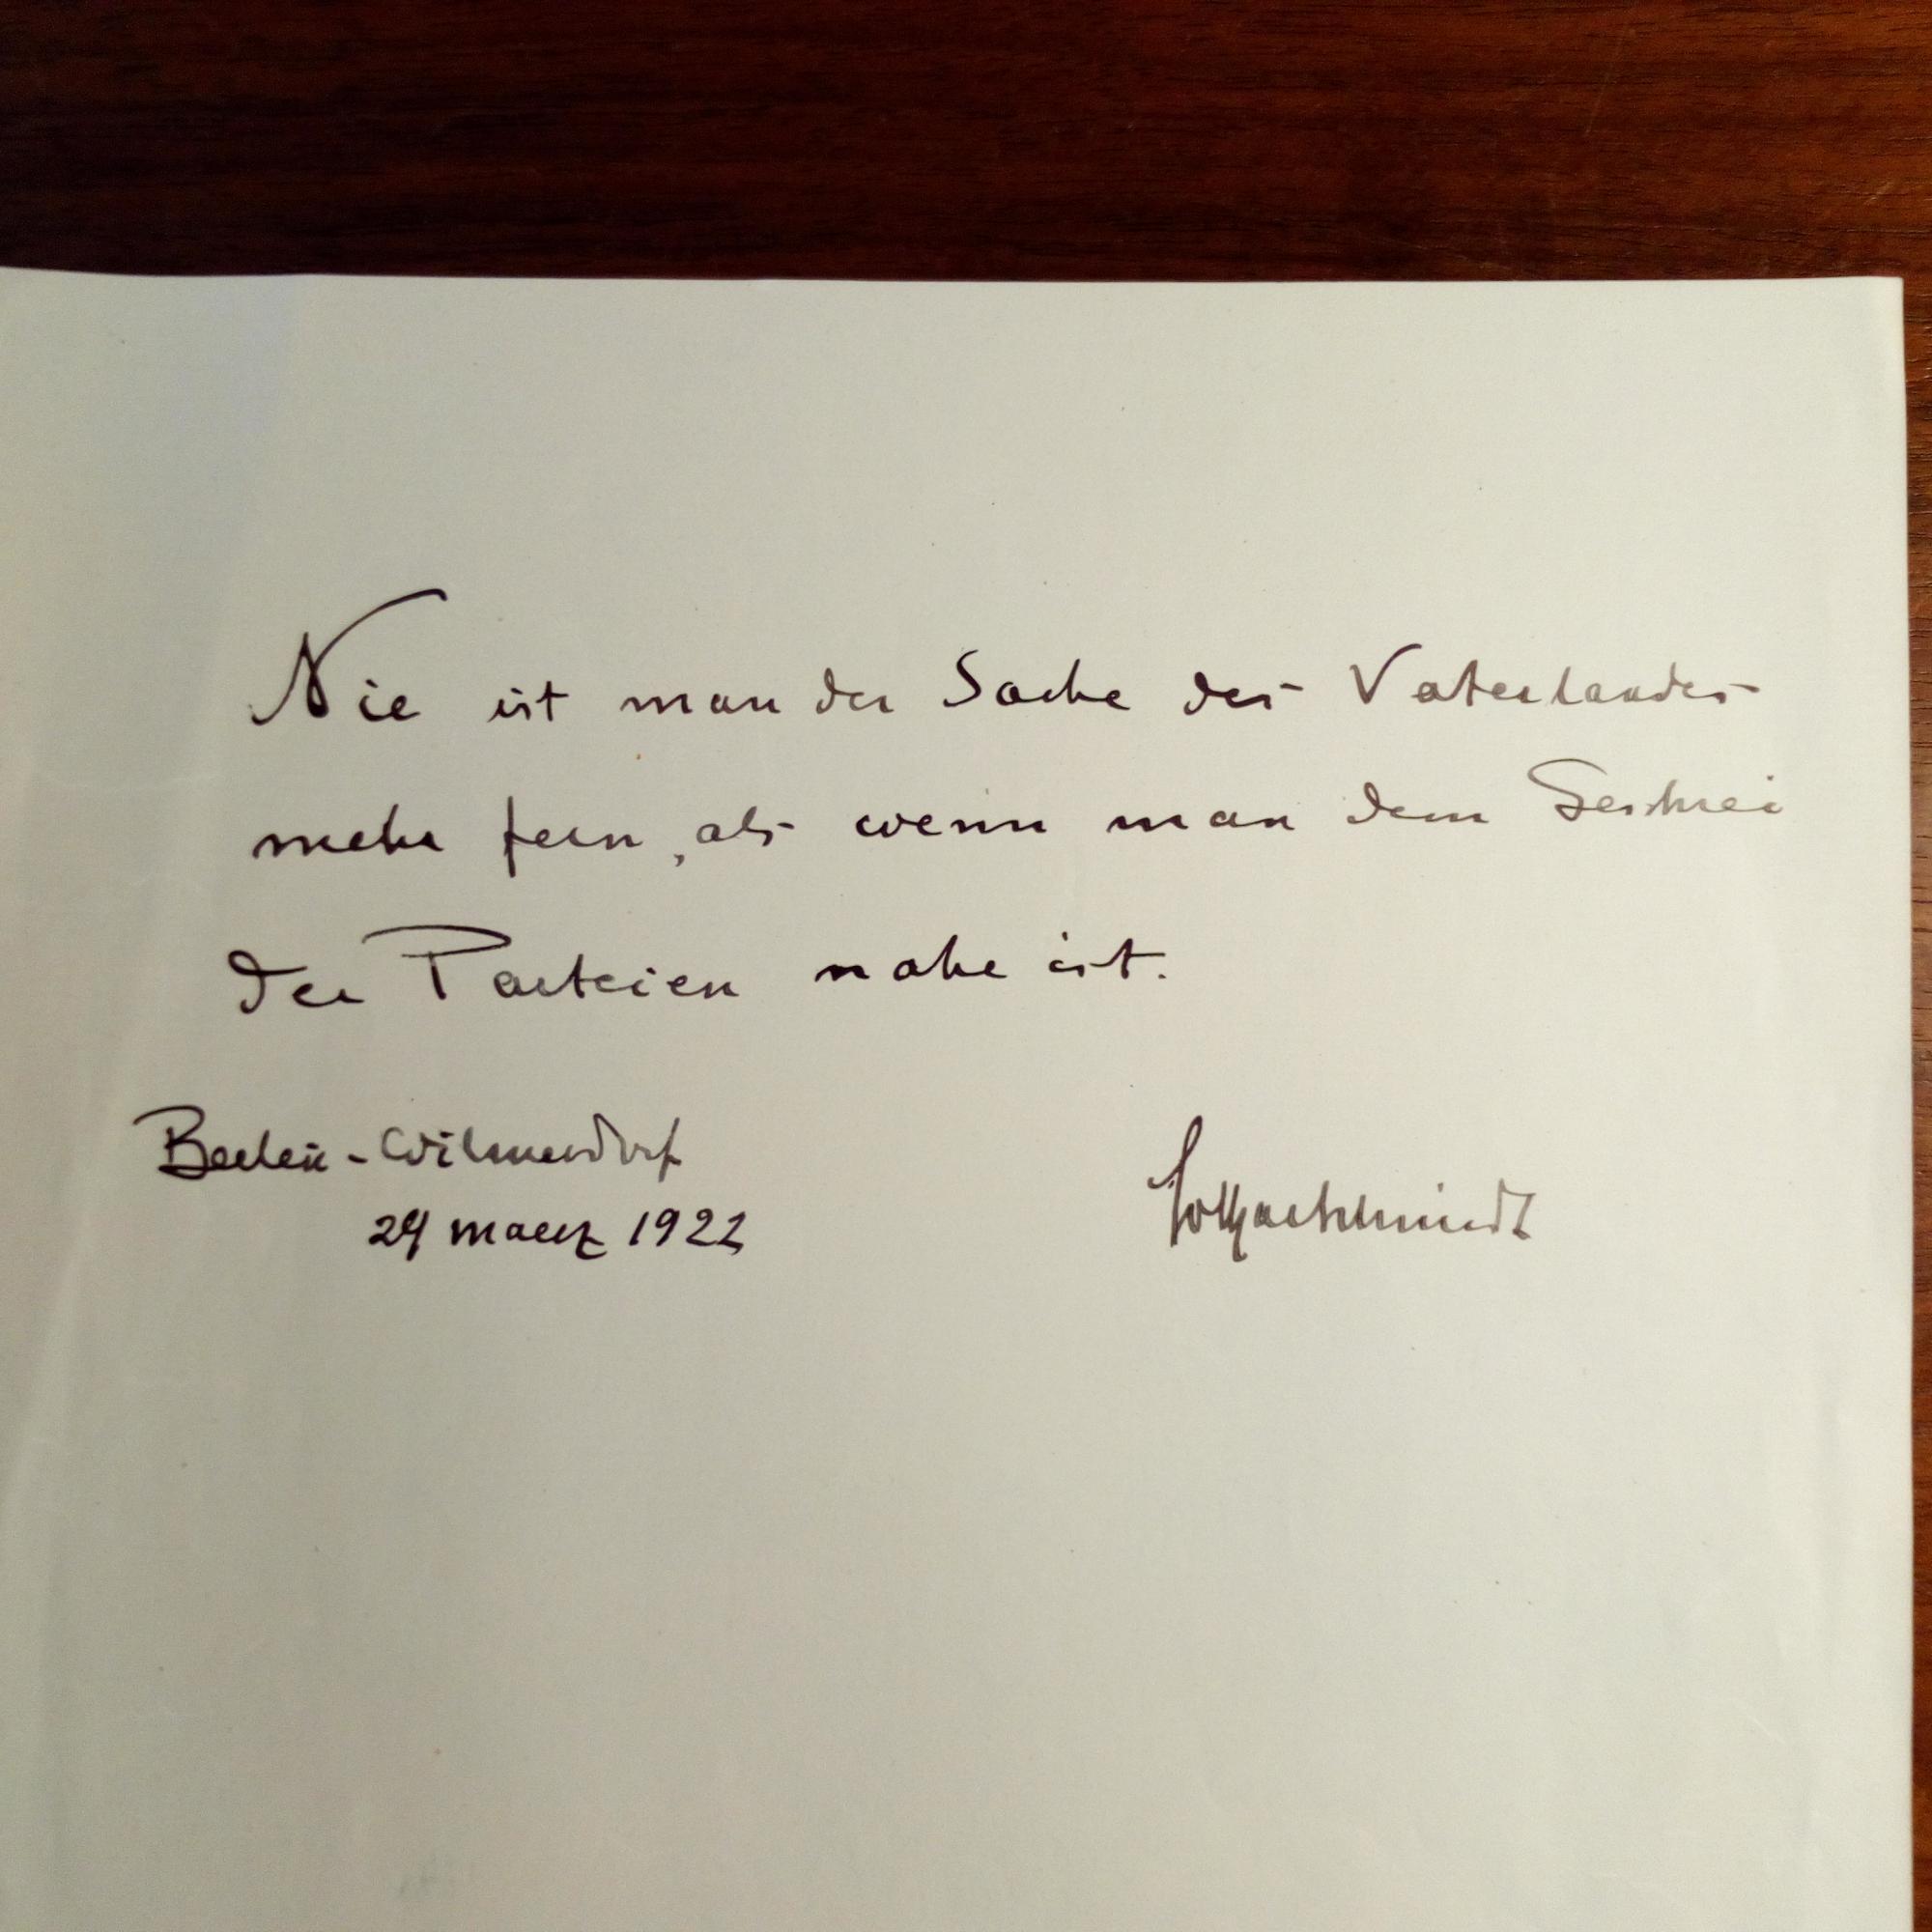 Nie ist man der Sache des Vaterlandes
mehr fern, als wenn man dem Geschrei
der Parteien nahe ist.
Berlin-Wilmersdorf
29 maerz 1922